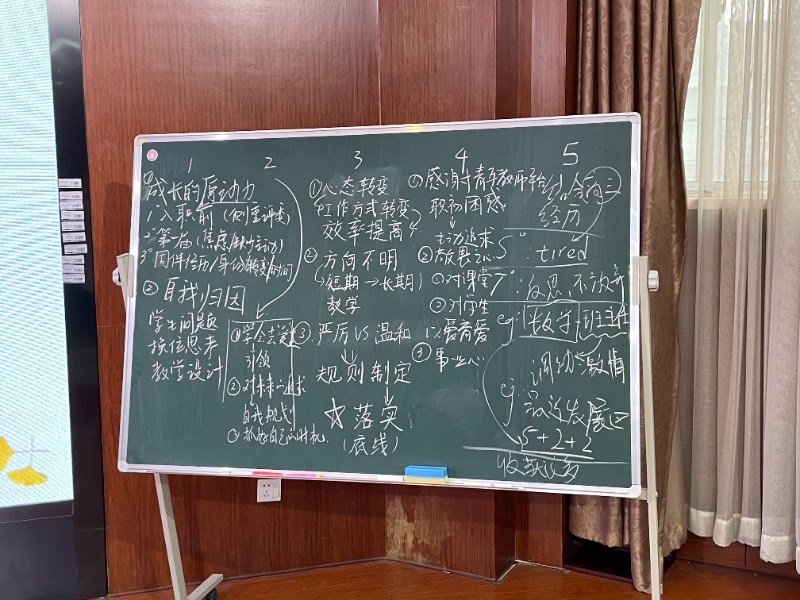 1
①
成长的原动力
1°入职前
2°第一届
3°同伴经历/身份转变
② 自我归因
学生问题
换位思考
教学设计
2
①学会
引领
②对未来 追求
自我规划
③抓好自己的时机
3
①心态转变
工作方式转变
效率提高
② 方向不明
短期→长期
教学
③ 严厉 VS 温和
规则制定
☆落实
(底线)
4
① 感谢 青年教师平台
职初困惑
主动追求
②
①对课堂
②对学生
以爱育爱
③ 事业心
5
结合
经历
5°: tired
7°: 反思、不放弃
eg: 数学 班主任
调动激情
eg: 发展区
5+2+2
收获